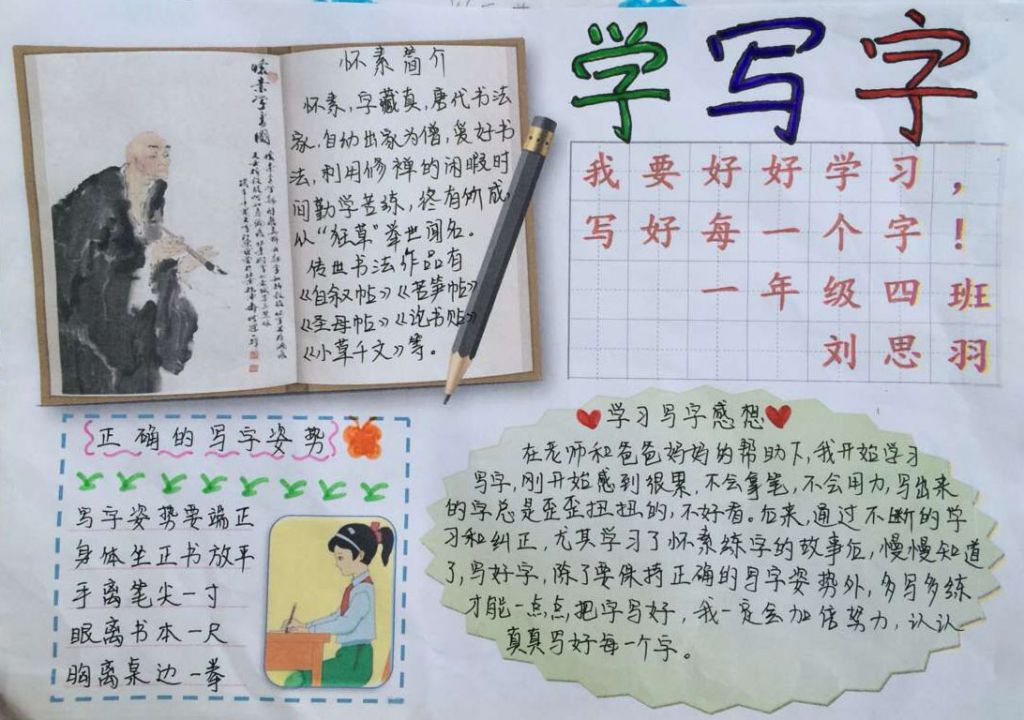 学写字
怀素简介
怀素,字藏真,唐代书法
家,自幼出家为僧,爱好书
法,利用修禅的闲暇时
间勤学苦练,终有所成,
以“狂草”举世闻名。
传世书法作品有
《自叙帖》《苦笋帖》
《圣母帖》《论书贴》
《小草千文》等。
我要好好学习,
写好每一个字!
一年级四班
刘思羽
正确的写字姿势
写字姿势要端正
身体坐正书放平
手离笔尖一寸
眼离书本一尺
胸离桌边一拳
学习写字感想
在老师和爸爸妈妈的帮助下,我开始学习
写字,刚开始感到很累,不会拿笔,不会用力,写出来
的字总是歪歪扭扭的,不好看。后来,通过不断的学
习和纠正,尤其学习了怀素练字的故事后,慢慢知道
了,写好字,除了要保持正确的写字姿势外,多写多练
才能一点点把字写好,我一定会加倍努力,认认
真真写好每一个字。